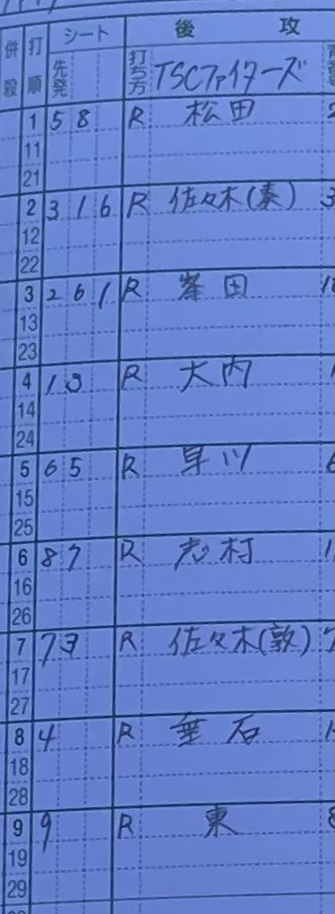 シート 後 攻
併殺 打順 先発 打ち方 TSCファイターズ
1 5 8 R 松田
11
21
2 3 1 6 R 佐々木(奏)
12
22
3 2 6 1 R 峯田
13
23
4 1 3 R 大内
14
24
5 6 5 R 早川
15
25
6 8 7 R 志村
16
26
7 7 9 R 佐々木(敦)
17
27
8 4 R 垂石
18
28
9 9 R 東
19
29